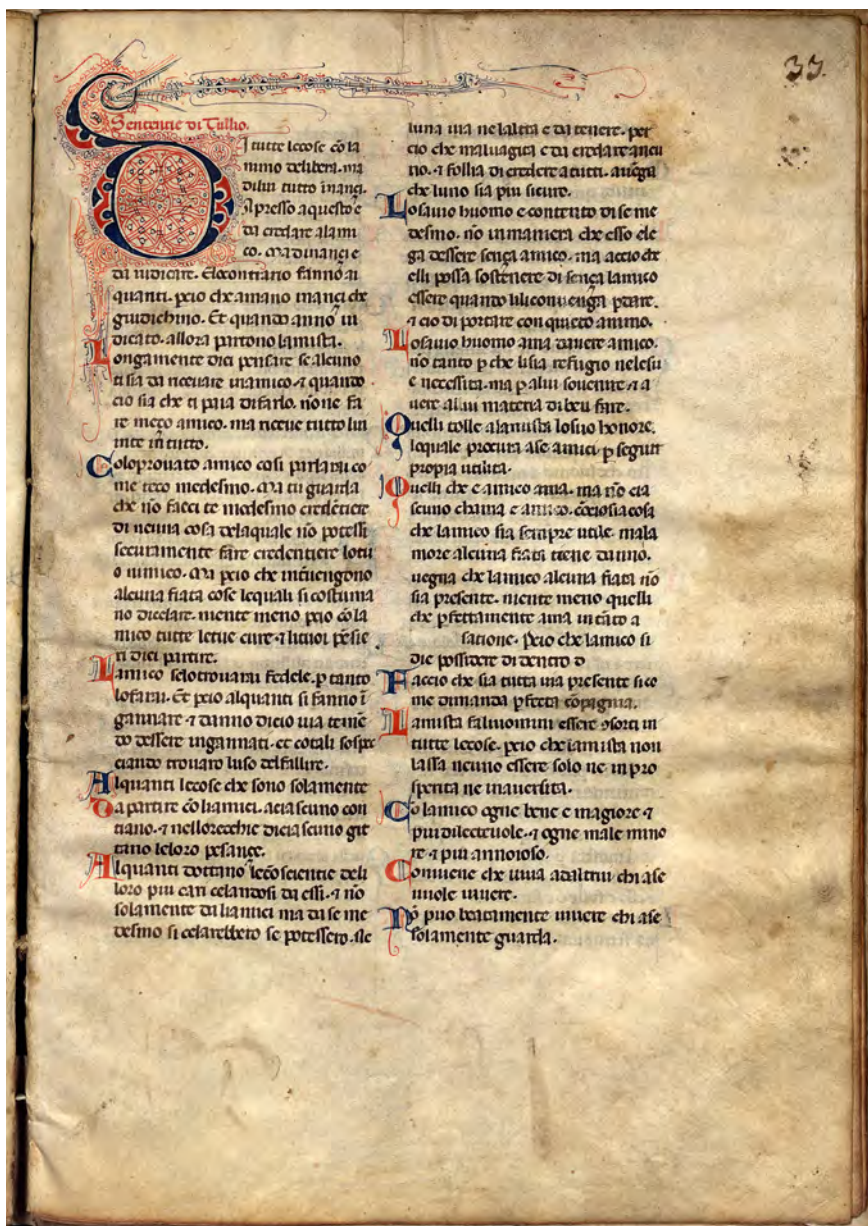 33
Sentencie di Tullio.
DI tutte le cose cō la
nimo delibera. ma
di lui tutto inançi.
Apresso a questo e
da credare a lami
co. Ma dinançi e
da iudicare. El contrario fanno ai
quanti. pcio che amano inançi che
giudichino. Et quando anno iu
dicato. allora partono lamista.
Longamente dici pensare se alcuno
ti sia da ricevare in amico. ⁊ quando
cio sia che ti paia di farlo. nō ne fa
re meço amico. ma riceve tutto lui
inte in tutto.
Col provato amico cosi parlarai co
me teco medesmo. Ma tu guarda
che nō facci te medesmo credētiere
di neuna cosa de laquale nō potessi
securamente fare credentiere lo tu
o nimico. Ma pcio che intervengono
alcuna fiata cose le quali si costuma
no dicelare. niente meno pcio cō la
mico tutte le tue cure. ⁊ li tuoi pēsie
ri dici partire.
Lamico se lo trovarai fedele. p tanto
lo farai. Et pcio alquanti si fanno ī
gannare. ⁊ danno di cio via temē
do dessere ingannati. et cotali sospe
ciando trovaro luso del fallire.
Alquanti le cose che sono solamente
da partire cō li amici. a ciascuno con
tiano. ⁊ nell orecchie di ciascuno git
tano le loro pesançe.
Alquanti dottano le cōscientie deli
loro piu cari celandosi da essi. ⁊ nō
solamente da li amici ma da se me
desmo si celarebbero se potessero. Ne
luna via ne laltra e da tenere. per
cio che malvagita e da credare ancu
no. ⁊ follia di credere a tutti. avēga
che luno sia piu sicuro.
Lo savio huomo e contento di se me
desmo. nō in maniera che esso ele
ga dessere sença amico. ma accio che
elli possa sostenere di sença lamico
essere quando li li convenga pdare.
⁊ cio di portare con quieto animo.
Lo savio huomo ama davere amico.
nō tanto p che li sia refugio ne le su
e necessita. ma p altrui sovenire ⁊ a
vere altrui materia di ben fare.
Quelli tolle a lamista lo suo honore.
lo quale procura a se amici. p seguir
propia utilita.
Quelli che e amico ama. ma nō cia
scuno ch ama e amico. cōciosiacosa
che lamico sia sempre utile. mala
more alcuna fiata tiene danno.
vegna che lamico alcuna fiata nō
sia presente. niente meno quelli
che pfettamente ama in tāto a
satione. Pcio che lamico si
die possidere di dentro o
Faccio che sia tutta via presente sico
me dimanda pfecta cōpagnia.
Lamista fa li uomini essere ꝯsorti in
tutte le cose. pcio che lamista non
lassa neuno essere solo ne in pro
sperita ne in aversita.
Cō lamico ogne bene e magiore ⁊
piu dilectevole. ⁊ ogne male mino
re ⁊ piu annoioso.
Conviene che viva ad altrui chi a se
vuole vivere.
Nō puo beatamente vivere chi a se
solamente guarda.